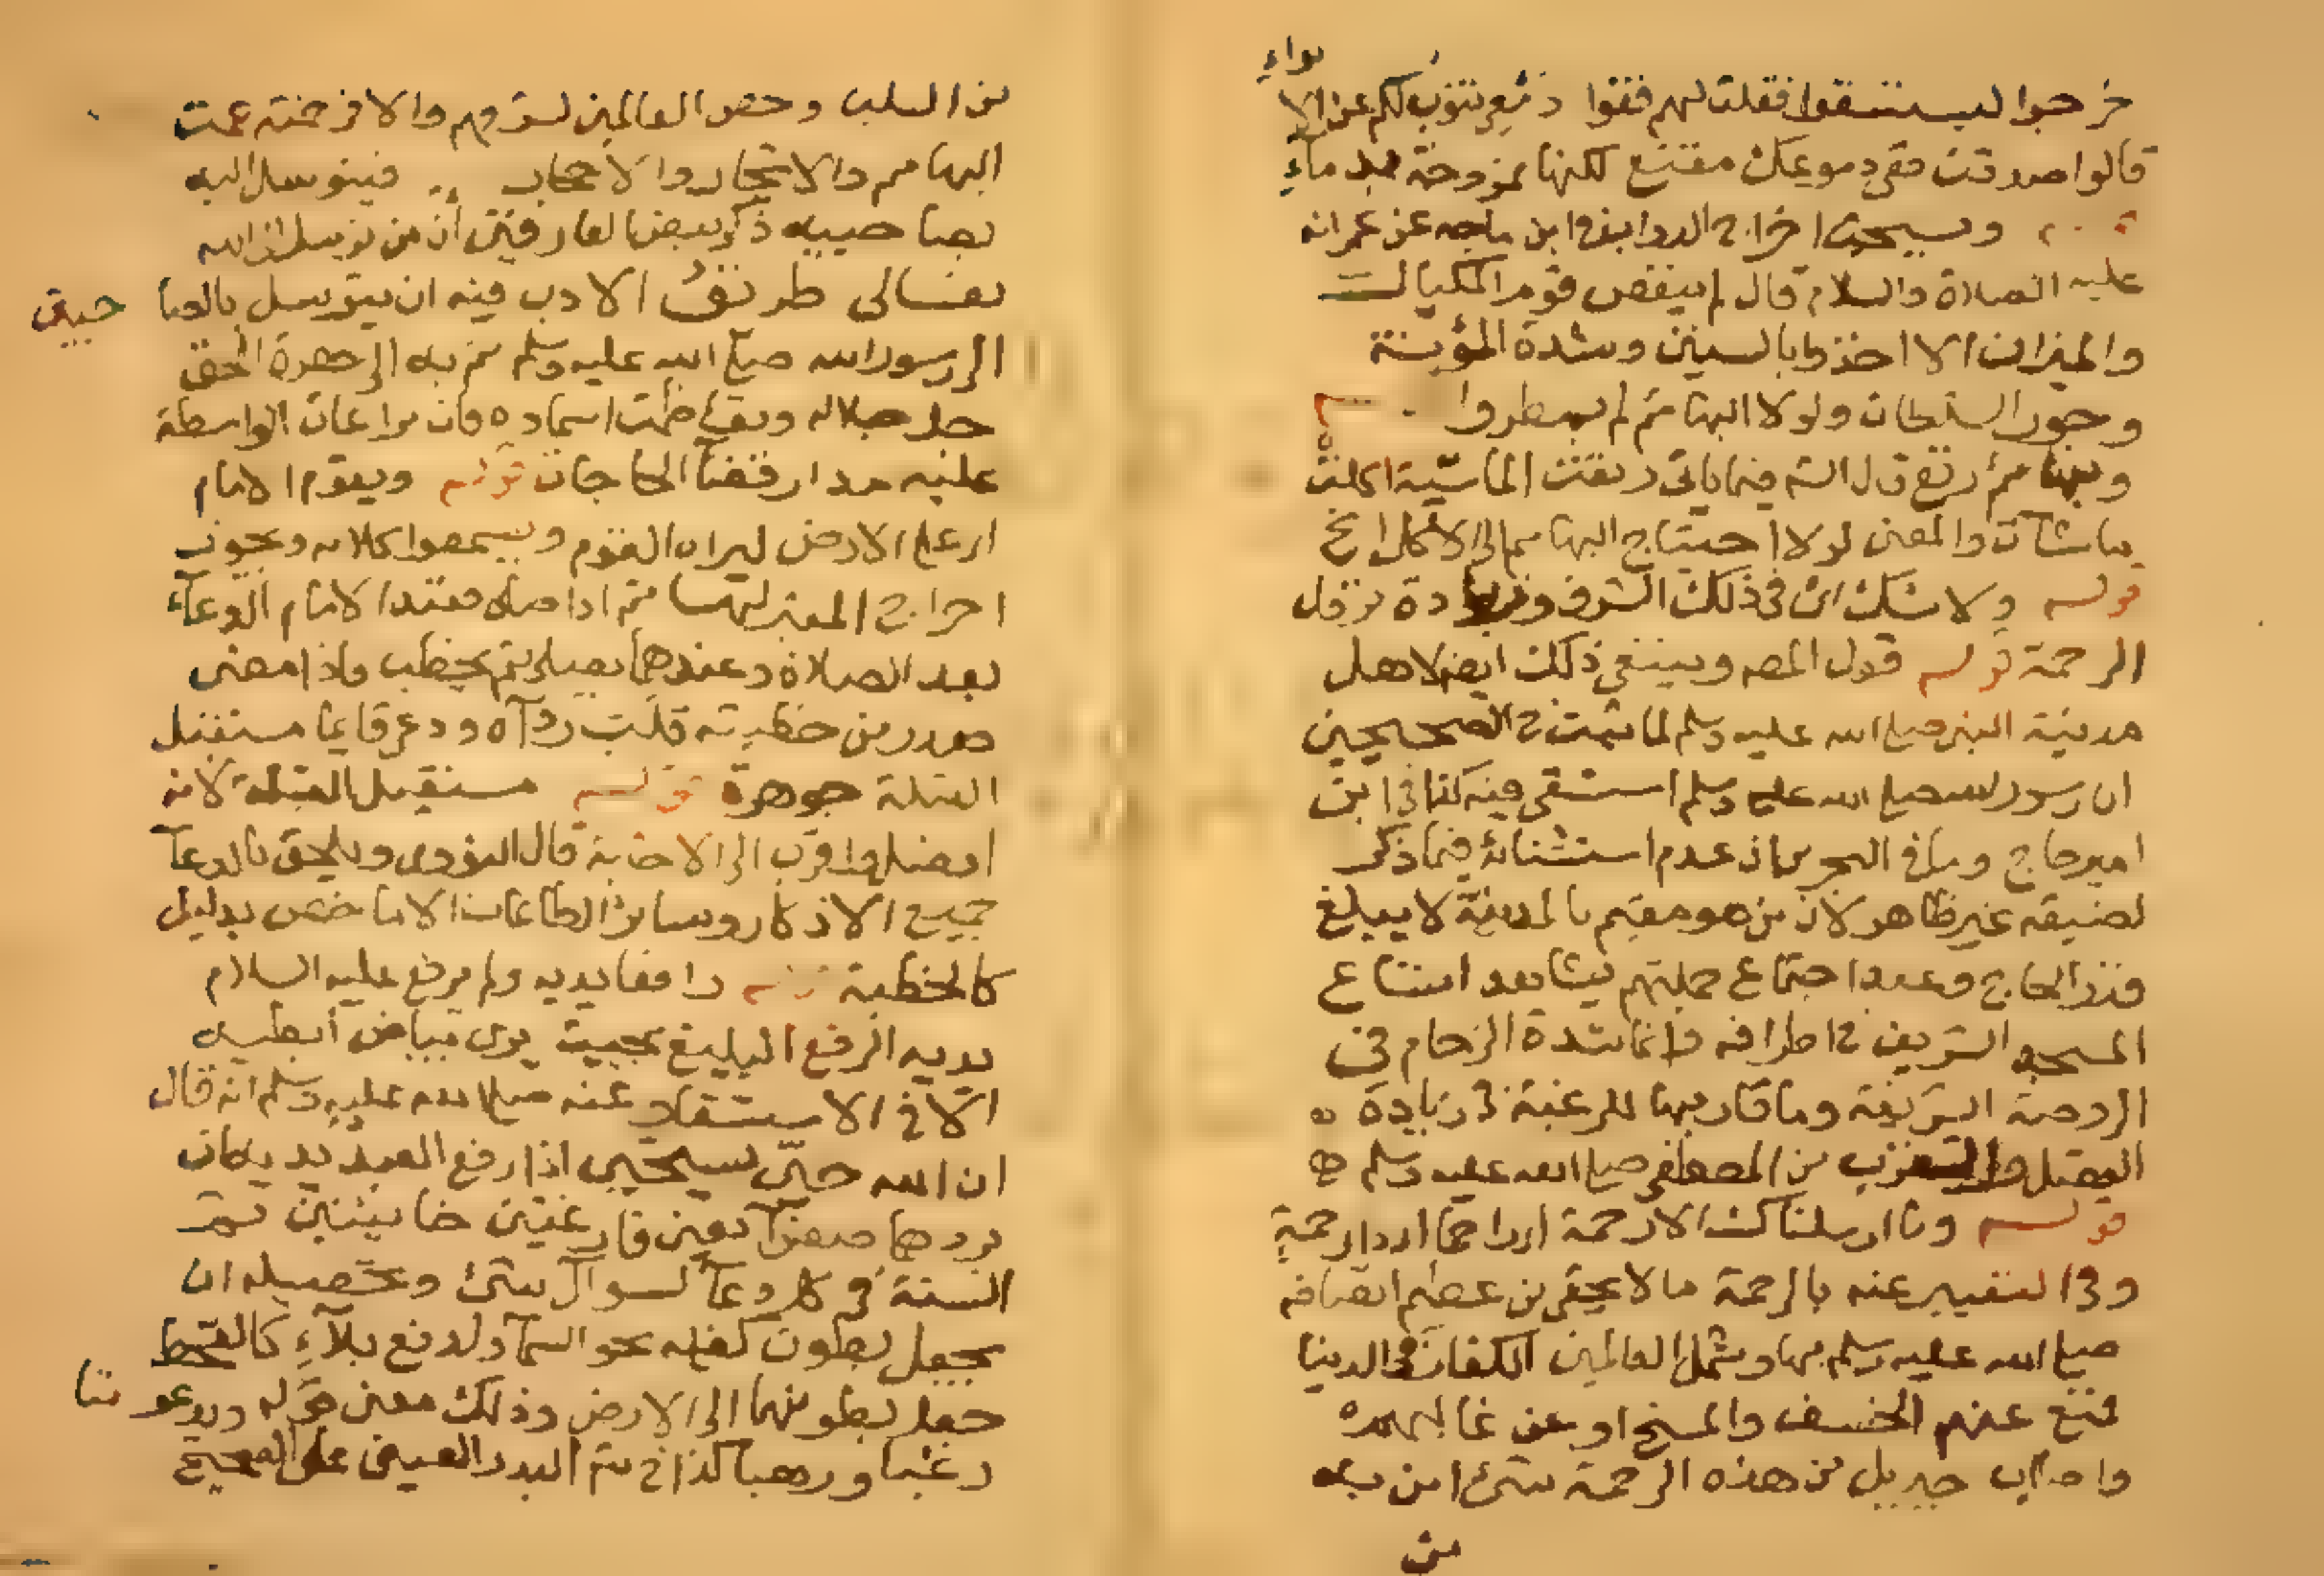 خرجوا ليستسقوا فقلت لهم قفوا دمعي ينوب لكم عن الا نواء
قالوا صدقت ففي دموعك مقنع لكنها ممزوجة بدماء
ويستحب اخراج الدواب ابن ماجه عن عمر انه
عليه الصلاة والسلام قال لم ينقص قوم المكيال
والميزان الا اخذوا بالسنين وشدة المؤنة
وجور السلطان ولولا البهائم لم يمطروا
وبهائم رتع قال الش فيما ياتي رتعت الماشية اكلت
ما شآت والمعنى لولا احتياج البهائم الى الاكل الخ
قوله ولا شك ان في ذلك الشرف وزيادة نزول
الرحمة قوله قول المصه وينبغي ذلك ايضا لاهل
مدينة النبي صلى الله عليه وسلم لما ثبت في الصحيحين
ان رسول الله صلى الله عليه وسلم استسقى فيه كذا في ابن
امير حاج وما في البحر من ان عدم استثنائه فيما ذكر
لضيقه غير ظاهر لان من هو مقيم بالمدينة لا يبلغ
قدر الحاج وعند اجتماع جملتهم يشاهد اتساع
المسجد الشريف في اطرافه وانما شدة الزحام في
الروضة الشريفة وما قاربها للرغبة في زيادة
الفضل والتقرب من المصطفى صلى الله عليه وسلم
قوله وما ارسلناك الا رحمة اي راحما او ذا رحمة
وفي التعبير عنه بالرحمة ما لا يخفى من عظيم اتصافه
صلى الله عليه وسلم بها وشمل العالمين الكفار في الدنيا
فمنع عنهم الخسف والمسخ او عن غالبهم
واصاب جبريل من هذه الرحمة شئ امن به
من
من السلب وخص العالمين لشرفهم والا فرحمته عمت
البهائم والاشجار والاحجار فيتوسل اليه
بصاحبيه ذكر بعض العارفين ان من توسل الى الله
تعالى طريق الادب فيه ان يتوسل بالصا حبين
الى رسول الله صلى الله عليه وسلم ثم به الى حضرة الحق
جل جلاله وتعاظمت اسماؤه فان مراعات الواسطة
عليه مدار قضآ الحاجات قوله ويقوم الامام
اي على الارض ليراه القوم ويسمعوا كلامه ويجوز
اخراج المنبر لها ثم اذا صلى فعند الامام الدعآء
بعد الصلاة وعندهما يصلي ثم يخطب واذا مضى
صدر من خطبته قلب ردآه ودعى قايما مستقبل
القبلة جوهرة قوله مستقبل القبلة لانه
افضل واقرب الى الاجابة قال النووى ويلحق بالدعآ
جميع الاذكار وسائر الطاعات الا ما خص بدليل
كالخطبة قوله رافعا يديه ولم يرفع عليه السلام
يديه الرفع البليغ بحيث يرى بياض ابطيه
الا في الاستسقاء وعنه صلى الله عليه وسلم انه قال
ان الله حيّ يستحيى اذا رفع العبد يديه ان
يردهما صفرآ وين فارغتين خائبتين ثم
السنة في كل دعآ لسوال شئ وتحصيله ان
يجعل بطون كفيه نحو السمآ ولدفع بلآء كالقحط
جعل بطونهما الى الارض وذلك معنى قوله ويدعو ننا
رغبا ورهبا كذا في شرح البدر العينى على الصحيح